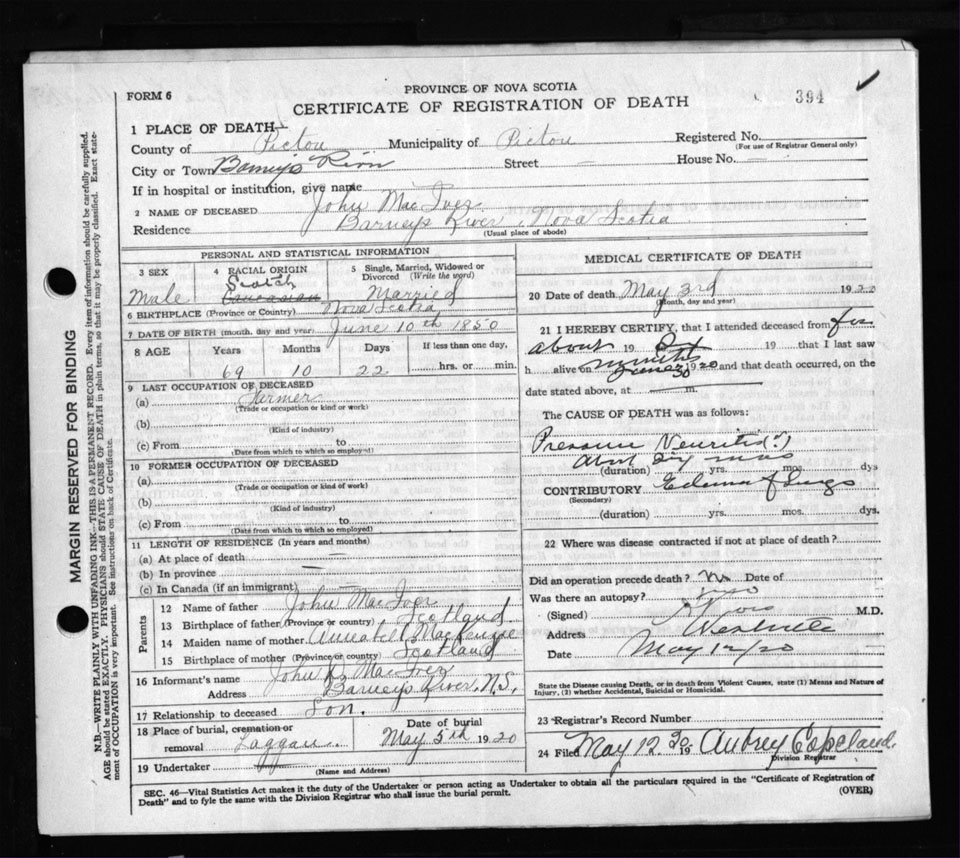 PROVINCE OF NOVA SCOTIA
FORM 6
CERTIFICATE OF REGISTRATION OF DEATH
394
1 PLACE OF DEATH—
County of Pictou Municipality of Pictou Registered No.
(For use of Registrar General only)
City or Town Barney's River Street — House No. —
If in hospital or institution, give name
2 NAME OF DECEASED John MacIver
Residence Barneys River, Nova Scotia
(Usual place of abode)
PERSONAL AND STATISTICAL INFORMATION
3 SEX
Male
4 RACIAL ORIGIN
Scotch
Caucasian
5 Single, Married, Widowed or Divorced (Write the word)
Married
6 BIRTHPLACE (Province or Country) Nova Scotia
7 DATE OF BIRTH (month, day and year) June 10th 1850
8 AGE Years Months Days If less than one day,
69 10 22 hrs. or min.
9 LAST OCCUPATION OF DECEASED
(a) Farmer
(Trade or occupation or kind or work)
(b)
(Kind of industry)
(c) From to
(Date from which to which so employed)
10 FORMER OCCUPATION OF DECEASED
(a)
(Trade or occupation or kind of work)
(b)
(Kind of industry)
(c) From to
(Date from which to which so employed)
11 LENGTH OF RESIDENCE (In years and months)
(a) At place of death —
(b) In province —
(c) In Canada (if an immigrant) —
Parents
12 Name of father John MacIver
13 Birthplace of father (Province or country) Scotland
14 Maiden name of mother Annabell MacKenzie
15 Birthplace of mother (Province or country) Scotland
16 Informant's name John MacIver
Address Barneys River, N.S.
17 Relationship to deceased Son.
18 Place of burial, cremation or removal Laggan. Date of burial May 5th 1920
19 Undertaker
(Name and Address)
MEDICAL CERTIFICATE OF DEATH
20 Date of death May 3rd 1920
(Month, day and year)
21 I HEREBY CERTIFY, that I attended deceased from for
about 19 19 that I last saw
h alive on 1920 and that death occurred, on the
date stated above, at m.
The CAUSE OF DEATH was as follows:
Pressure Neuritis (?)
about six mos
(duration) yrs. mos. dys
CONTRIBUTORY Edema of Lungs
(Secondary)
(duration) yrs. mos. dys.
22 Where was disease contracted if not at place of death?
Did an operation precede death? No Date of
Was there an autopsy?
(Signed) M.D.
Address Westville
Date May 12/20
State the Disease causing Death, or in death from Violent Causes, state (1) Means and Nature of Injury, (2) whether Accidental, Suicidal or Homicidal.
23 Registrar's Record Number
24 Filed May 12 20 19 Aubrey Copeland.
Division Registrar
SEC. 46—Vital Statistics Act makes it the duty of the Undertaker or person acting as Undertaker to obtain all the particulars required in the "Certificate of Registration of
Death" and to fyle the same with the Division Registrar who shall issue the burial permit.
(OVER)
MARGIN RESERVED FOR BINDING
N.B.—WRITE PLAINLY WITH UNFADING INK—THIS IS A PERMANENT RECORD. Every item of information should be carefully supplied.
AGE should be stated EXACTLY. PHYSICIANS should STATE CAUSE OF DEATH in plain terms, so that it may be properly classified. Exact state-
ment of OCCUPATION is very important. See instructions on back of Certificate.